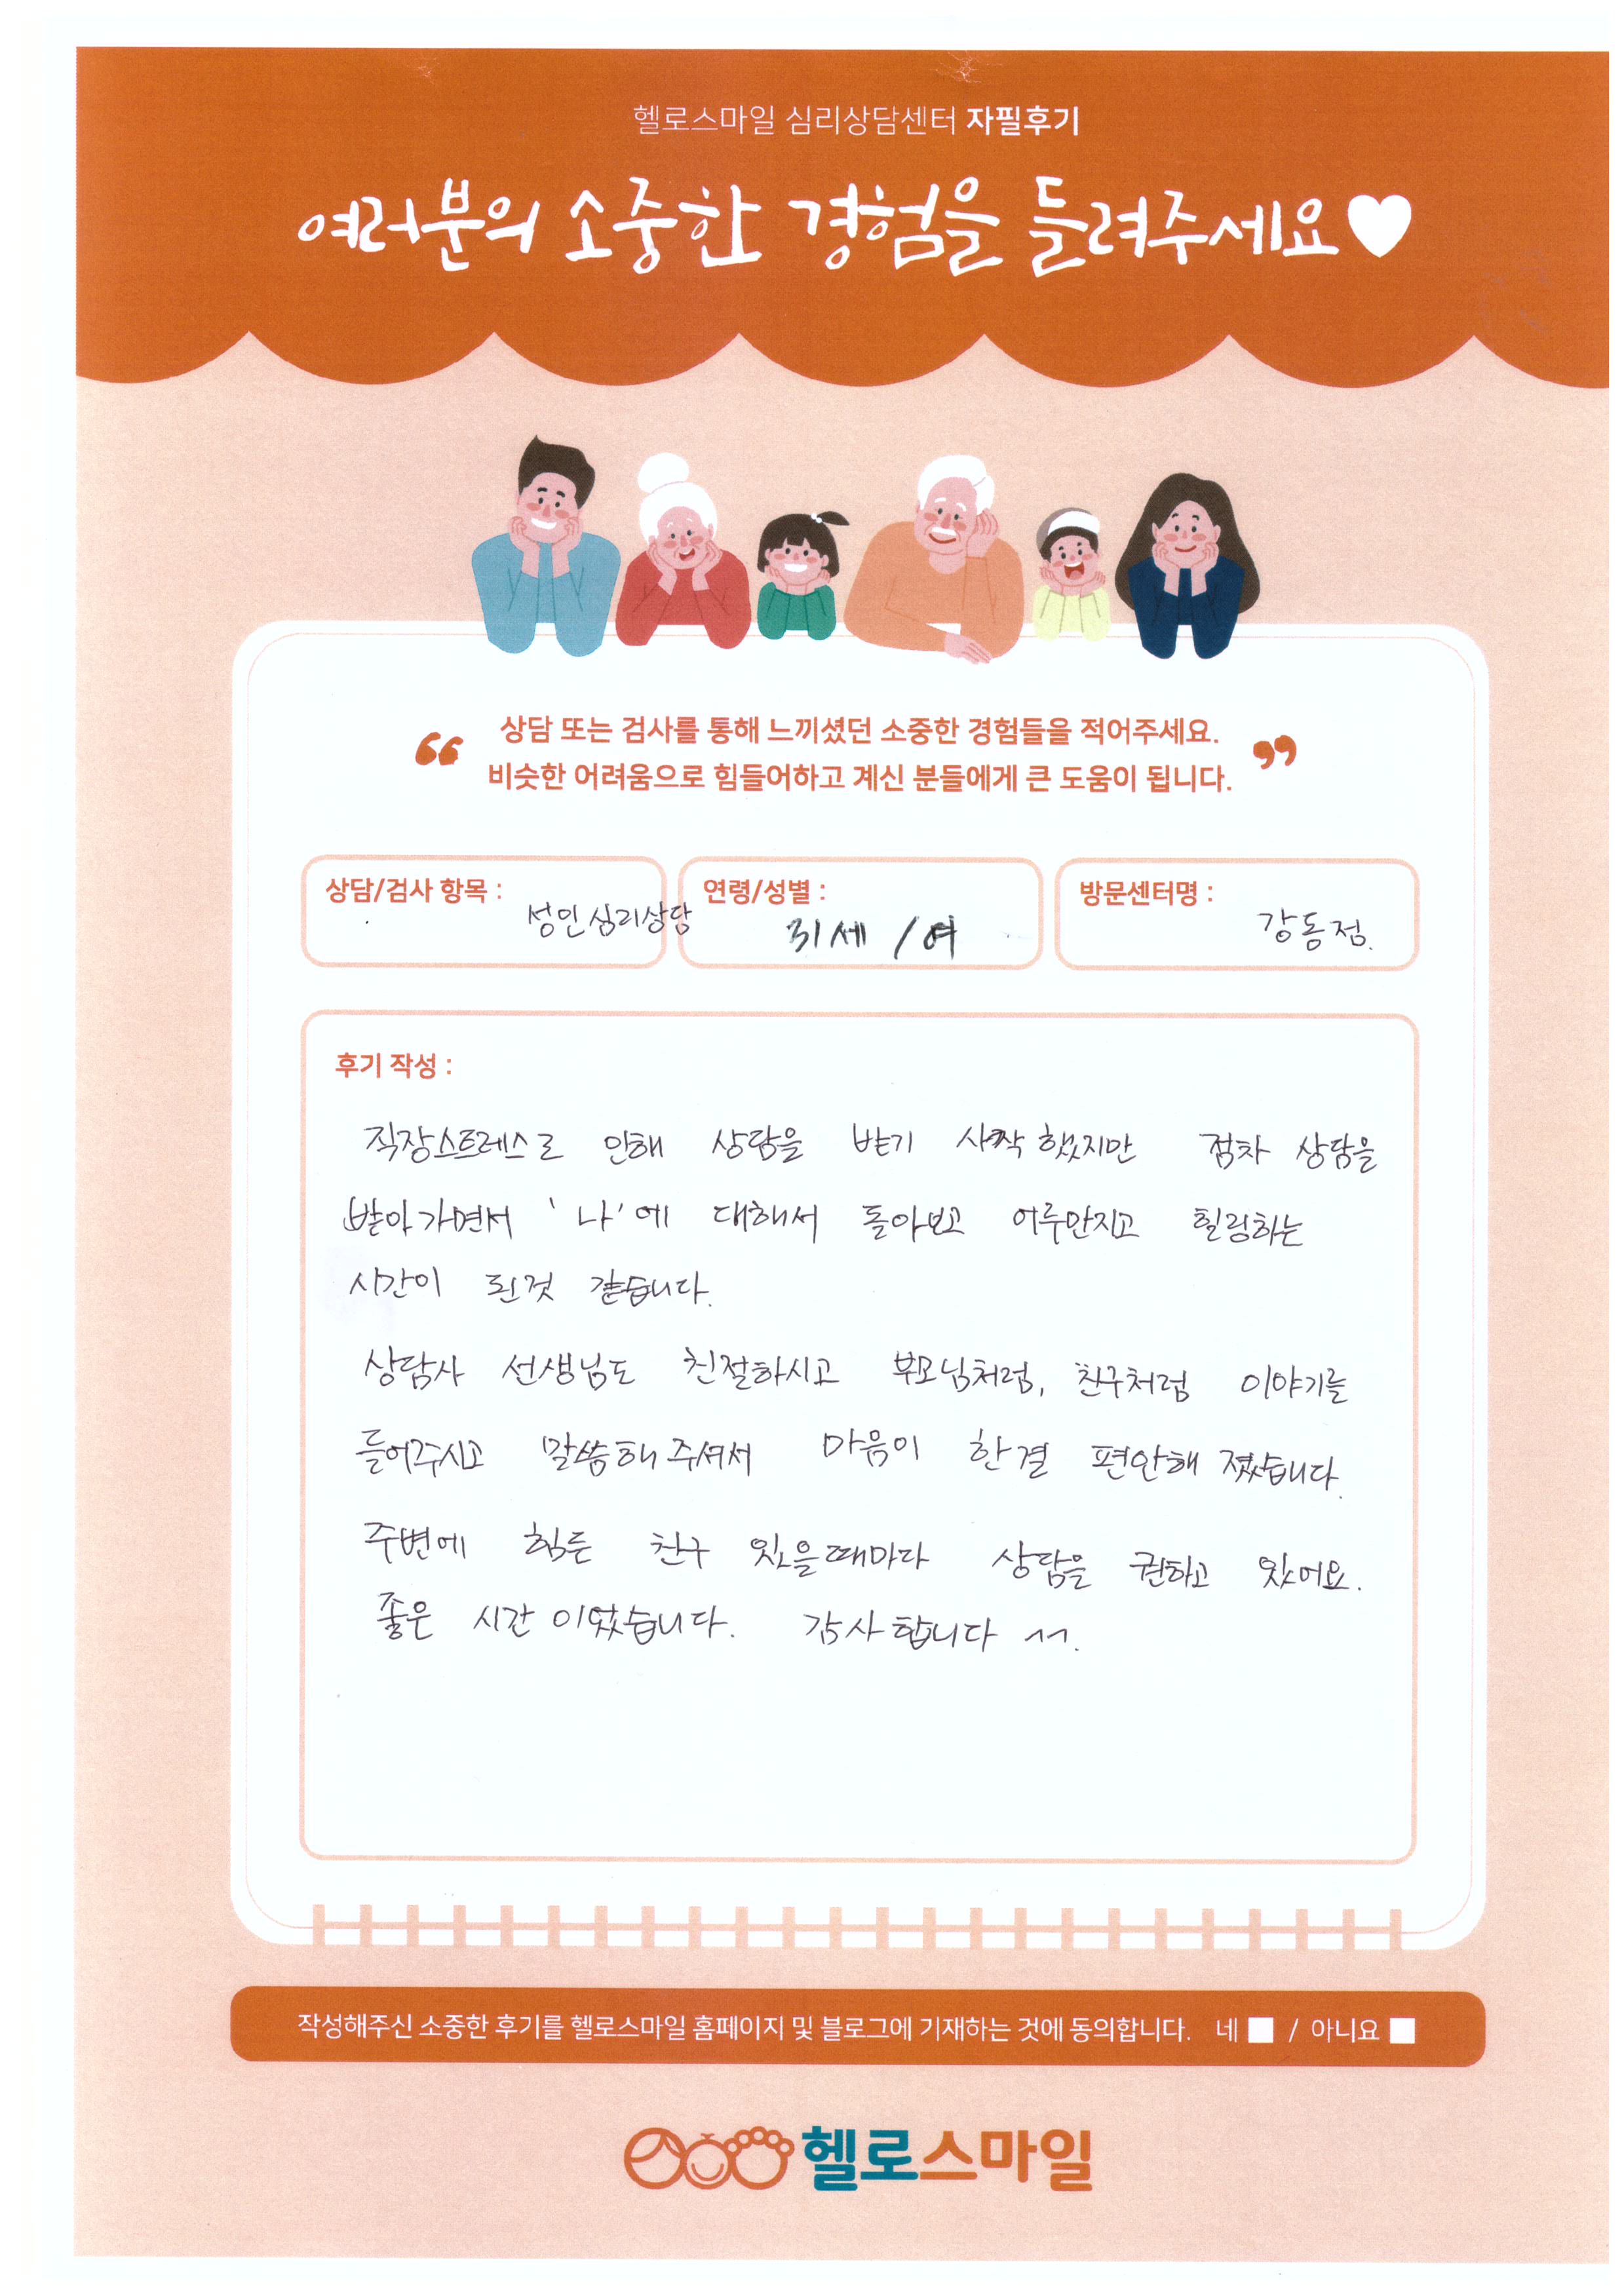 헬로스마일 심리상담센터 자필후기
여러분의 소중한 경험을 들려주세요♥
“ 상담 또는 검사를 통해 느끼셨던 소중한 경험들을 적어주세요.
비슷한 어려움으로 힘들어하고 계신 분들에게 큰 도움이 됩니다. ”
상담/검사 항목 : 성인심리상담
연령/성별 : 31세 / 여
방문센터명 : 강동점.
후기 작성 :
직장스트레스로 인해 상담을 받기 시작했지만 점차 상담을
받아가면서 '나'에 대해서 돌아보고 어루만지고 힐링하는
시간이 된것 같습니다.
상담사 선생님도 친절하시고 부모님처럼, 친구처럼 이야기를
들어주시고 말씀해 주셔서 마음이 한결 편안해 졌습니다.
주변에 힘든 친구 있을때마다 상담을 권하고 있어요.
좋은 시간이었습니다. 감사합니다 ^^.
작성해주신 소중한 후기를 헬로스마일 홈페이지 및 블로그에 기재하는 것에 동의합니다. 네 / 아니요
헬로스마일